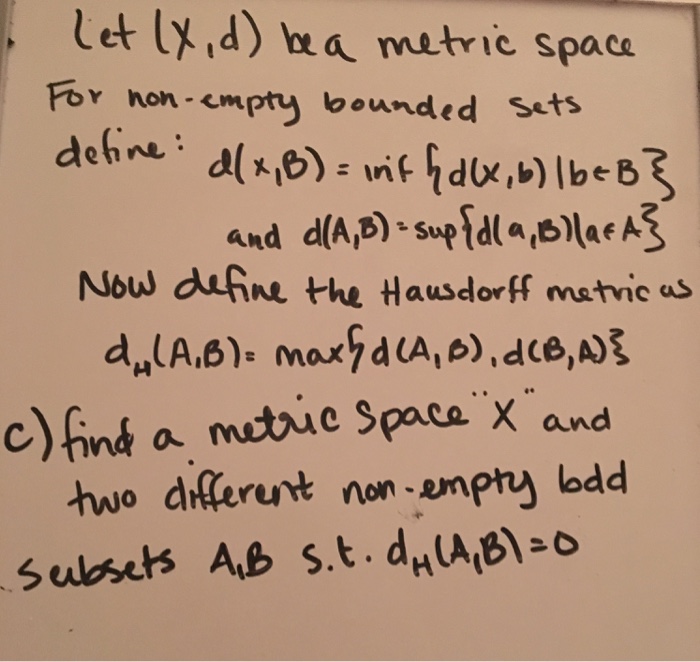 Let (X,d) be a metric space
For non-empty bounded sets
define: d(x,B) = inf {d(x,b) | b∈B}
and d(A,B) = sup{d(a,B)|a∈A}
Now define the Hausdorff metric as
d_H(A,B) = max{d(A,B), d(B,A)}
c) find a metric space "X" and
two different non-empty bdd
subsets A,B s.t. d_H(A,B)=0